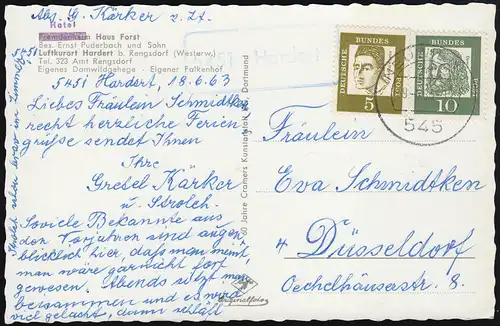 Abs. G. Kärker z. Zt.
Hotel
Fremdenheim Haus Forst
Bes. Ernst Puderbach und Sohn
Luftkurort Hardert b. Rengsdorf (Westerw.)
Tel. 323 Amt Rengsdorf
Eigenes Damwildgehege - Eigener Falkenhof
5451 Hardert
5451 Hardert, 18.6.63
Liebes Fräulein Schmidtken
recht herzliche Ferien
grüße sendet Ihnen
Ihre
Gretel Kärker
u. Strolch.
Soviele Bekannte aus
den Vorjahren sind augen
blicklich hier, daß man meint,
man wäre garnicht fort
gewesen. Abends sitzt man
beisammen und es wird
viel gelacht, dann schläft
Strolch schon brav im Zimmer.
60 Jahre Cramers Kunstanstalt Dortmund
Originalfoto
DEUTSCHE BUNDESPOST
5
DEUTSCHE BUNDESPOST
10
545
Fräulein
Eva Schmidtken
4 Düsseldorf
Oechelhäuserstr. 8.